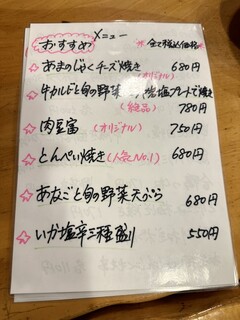 おすすめ メニュー ※全て税込価格※
☆あまのじゃくチーズ焼き 680円
(オリジナル)
☆牛カルビと旬の野菜 岩塩プレートで焼き
(絶品) 780円
☆肉豆富 (オリジナル) 750円
☆とんぺい焼き (人気No.1) 680円
☆あなごと旬の野菜天ぷら
680円
☆いか塩辛三種盛り 550円